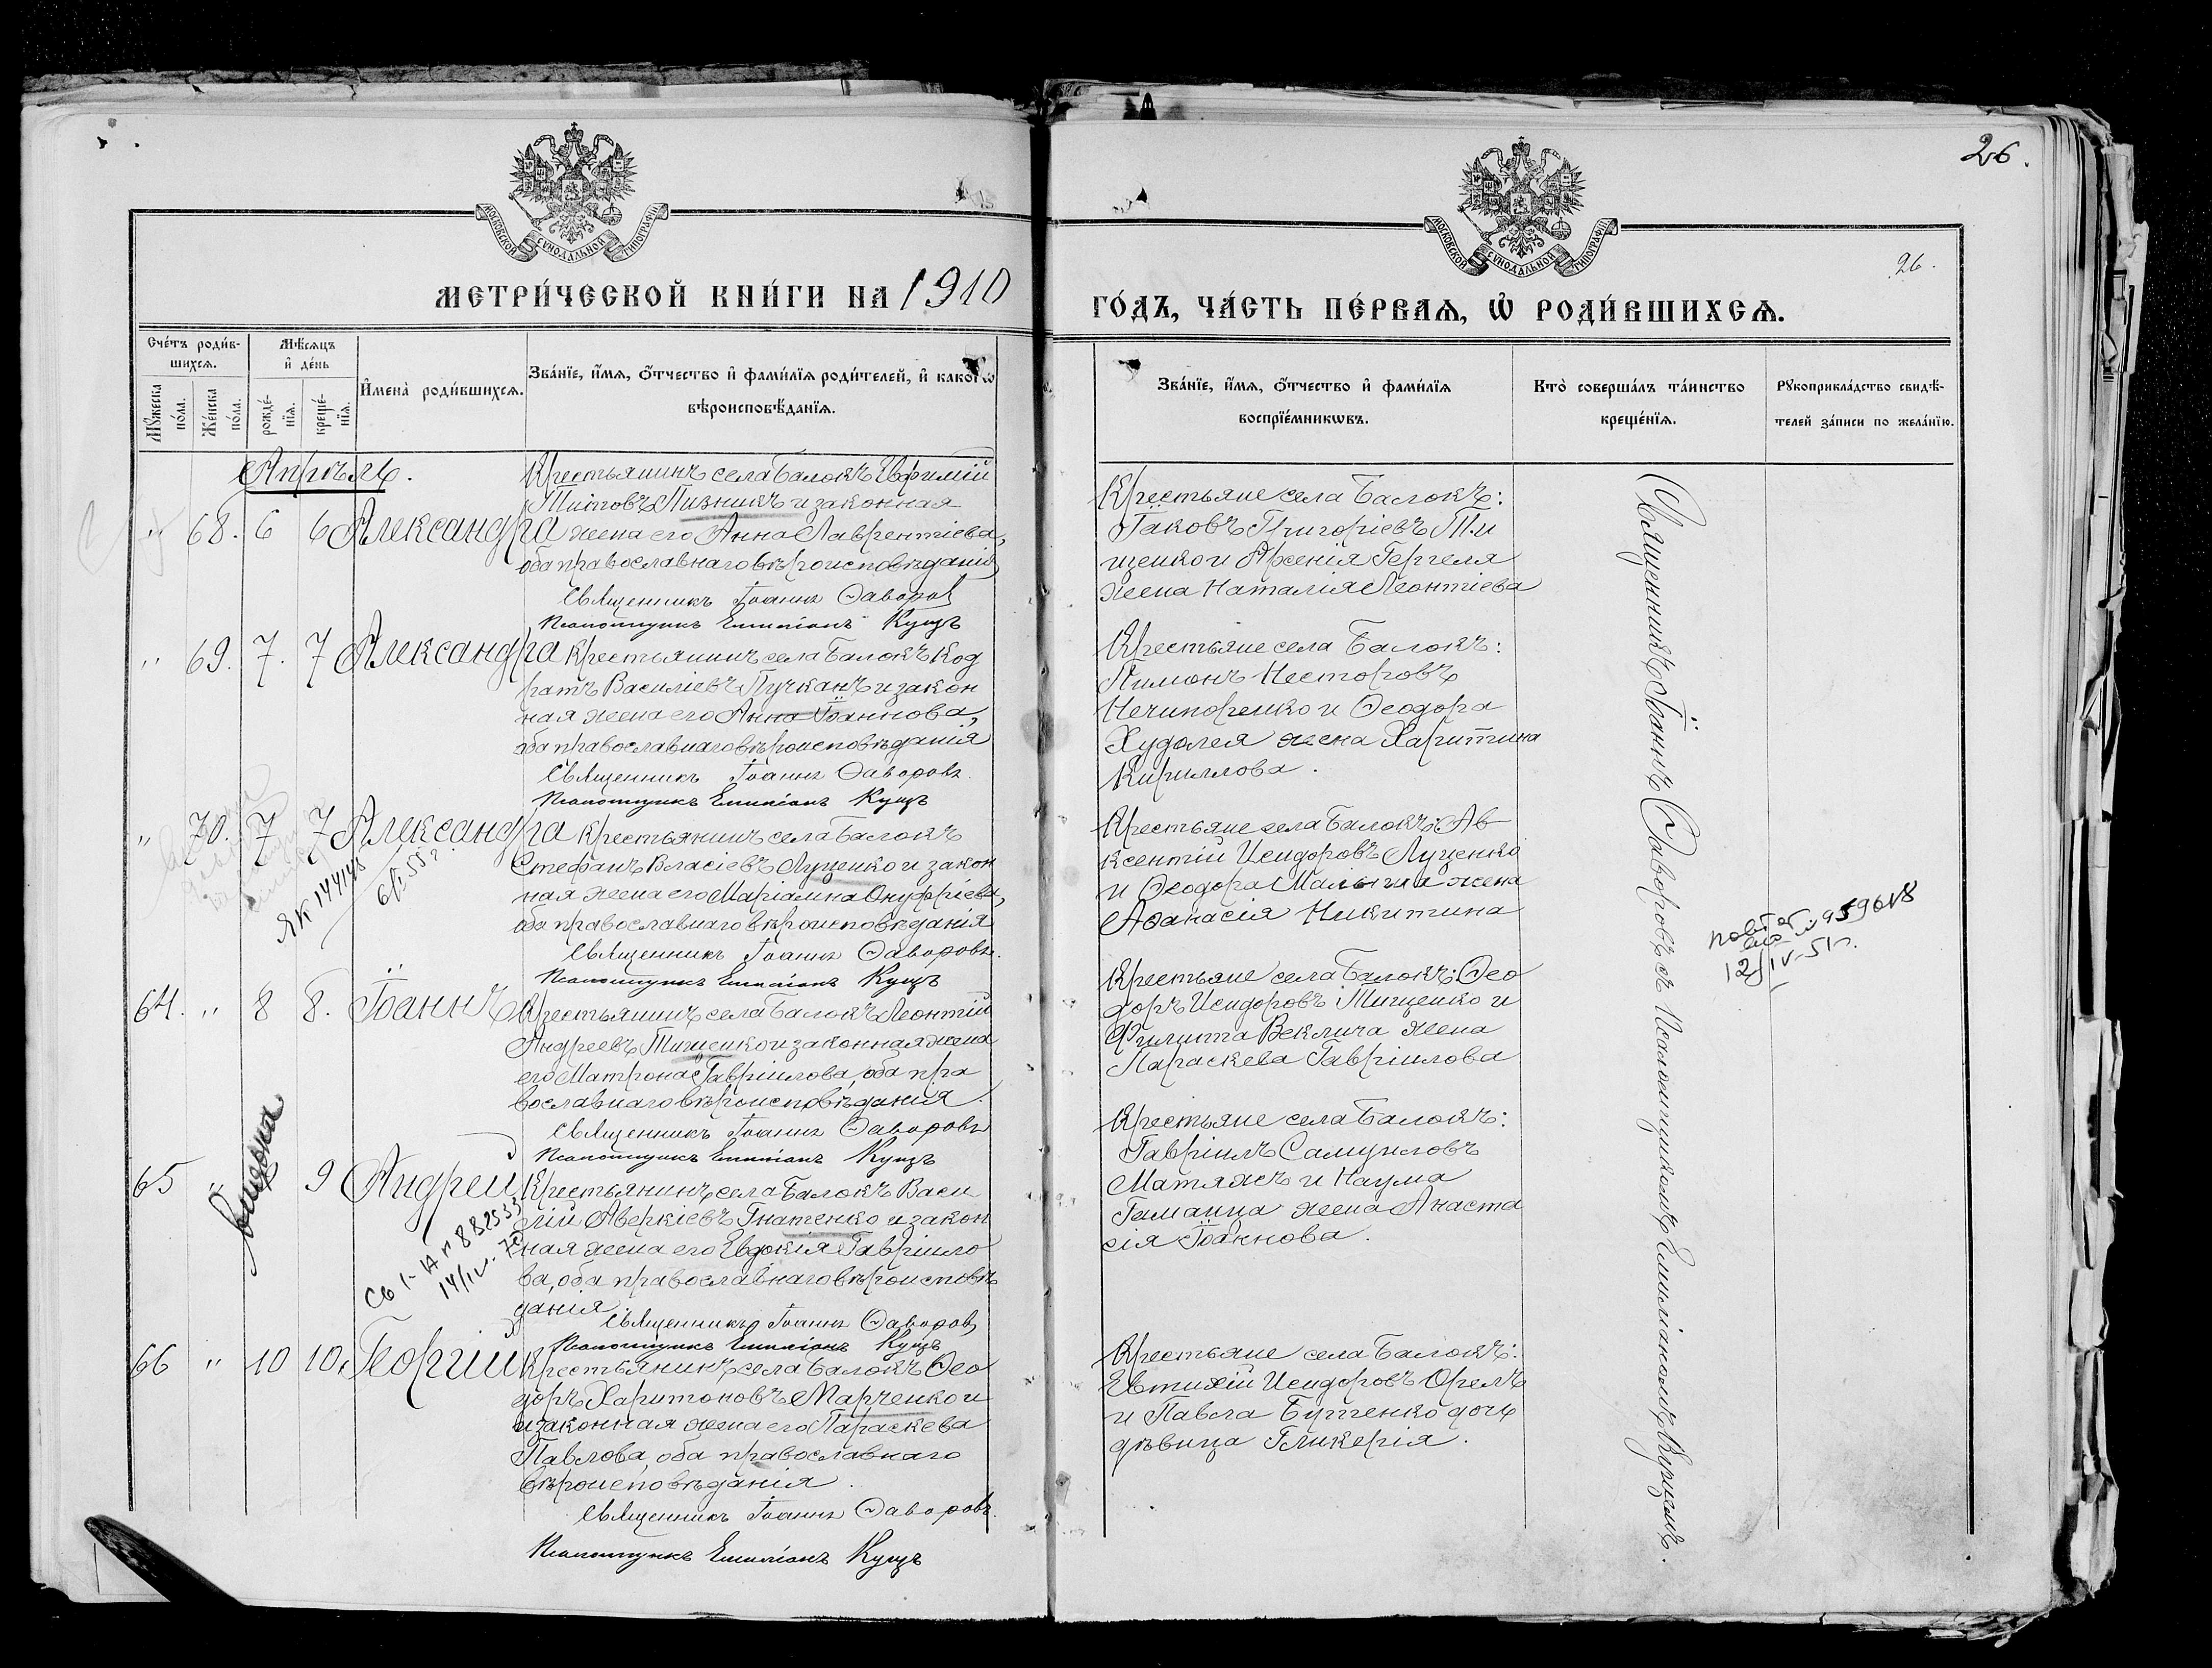 26.
МОСКОВСКОЙ СѴНОДАЛЬНОЙ ТИПОГРАФІИ
МОСКОВСКОЙ СѴНОДАЛЬНОЙ ТИПОГРАФІИ
26.
МЕТРИ́ЧЕСКОЙ КНИ́ГИ НА 1910
ГО́ДЪ, ЧА́СТЬ ПЕ́РВАѦ, Ѡ҆ РОДИ́ВШИХСѦ.
Сче́тъ роди́в-
шихсѧ.
Мѣ́сѧцъ
и҆ де́нь
Мꙋ́жеска по́ла.
Же́нска по́ла.
рожде́-
нїѧ.
креще́-
нїѧ.
И҆мена̀ роди́вшихсѧ.
Зва́нїе, и҆́мѧ, ѻ҆́тчество и҆ фами́лїѧ роди́телей, и҆ како́гѡ
вѣроисповѣ́данїѧ.
Зва́нїе, и҆́мѧ, ѻ҆́тчество и҆ фами́лїѧ
воспрїе́мникѡвъ.
Кто̀ соверша́лъ та́инство
креще́нїѧ.
Рꙋкоприкла́дство свидѣ́-
телей за́писи по жела́нїю.
Апрѣль.
" 68. 6 6 Александра
Крестьянинъ села Балокъ Евфимій
Титовъ Пизникъ и законная
жена его Анна Лаврентіева,
оба православнаго вѣроисповѣданія
Священникъ Іоаннъ Ѳаворовъ
Псаломщикъ Емиліанъ Кущъ
Крестьяне села Балокъ:
Іаковъ Григоріевъ Ти
щенко и Арсенія Гергеля
жена Наталія Леонтіева
" 69. 7. 7 Александра
Крестьянинъ села Балокъ Код
ратъ Василіевъ Пучканъ и закон
ная жена его Анна Іоаннова,
оба православнаго вѣроисповѣданія
Священникъ Іоаннъ Ѳаворовъ.
Псаломщикъ Емиліанъ Кущъ
Крестьяне села Балокъ:
Пимонъ Несторовъ
Нечипоренко и Ѳеодора
Худолея жена Харитина
Кириллова.
" 70. 7 7 Александра
ЯК 144148
Крестьянинъ села Балокъ
Стефанъ Власіевъ Луценко и закон
ная жена его Маріамна Онуфріева,
оба православнаго вѣроисповѣданія
Священникъ Іоаннъ Ѳаворовъ.
Псаломщикъ Емиліанъ Кущъ
Крестьяне села Балокъ: Ав
ксентій Исидоровъ Луценко
и Ѳеодора жена
Аѳанасія Никитина
64. " 8 8. Іоаннъ
Крестьянинъ села Балокъ Леонтій
Андреевъ Тищенко и законная жена
его Матрона Гавріилова, оба пра
вославнаго вѣроисповѣданія.
Священникъ Іоаннъ Ѳаворовъ
Псаломщикъ Емиліанъ Кущъ
Крестьяне села Балокъ: Ѳео
доръ Исидоровъ Тищенко и
Филиппа Веклича жена
Параскева Гавріилова
12/IV-51г.
65 " 9 Андрей
14/IV-
Крестьянинъ села Балокъ Васи
лій Аверкіевъ Гнатенко и закон
ная жена его Евдокія Гавріило
ва, оба православнаго вѣроисповѣ
данія
Священникъ Іоаннъ Ѳаворовъ
Псаломщикъ Емиліанъ Кущъ
Крестьяне села Балокъ:
Гавріилъ Самуиловъ
Матяжъ и Наума
Гаманца жена Анаста
сія Іоаннова.
66 " 10 10. Георгій
Крестьянинъ села Балокъ Ѳео
доръ Харитоновъ Марченко и
и законная жена его Параскева
Павлова, оба православнаго
вѣроисповѣданія.
Священникъ Іоаннъ Ѳаворовъ.
Псаломщикъ Емиліанъ Кущъ
Крестьяне села Балокъ:
Евтихій Исидоровъ Орелъ
и Павла Бутченко дочь
дѣвица Гликерія.
Священникъ Іоаннъ Ѳаворовъ съ Псаломщикомъ Емиліаномъ Кущемъ.